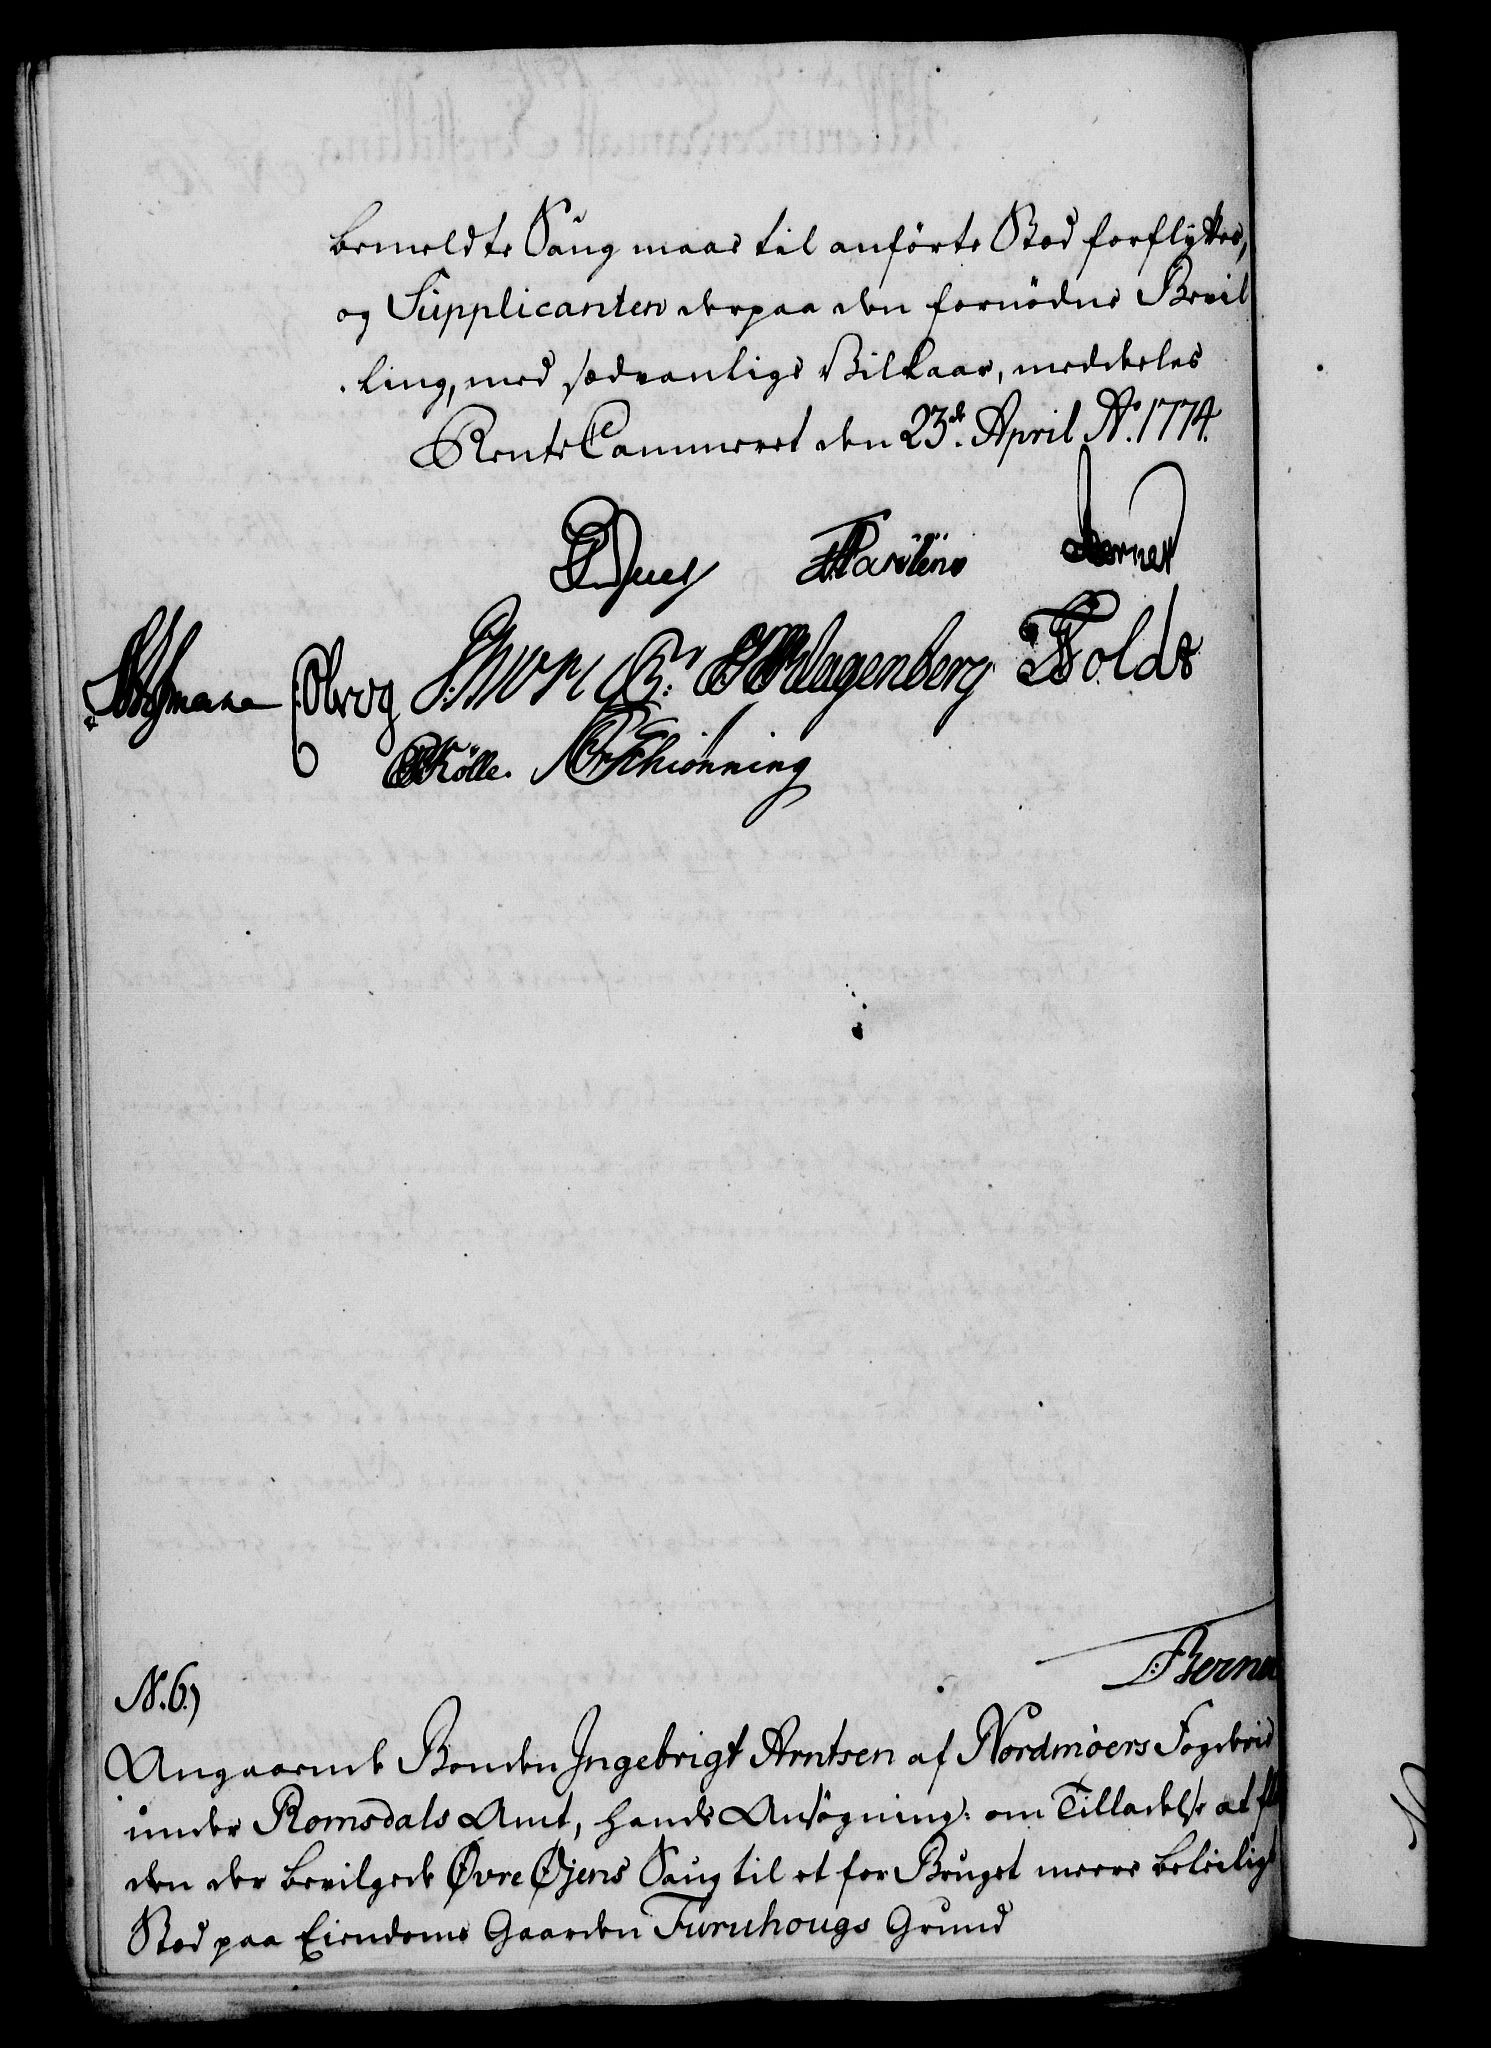 bemeldte Saug maae til anførte Sted forflyttes,
og Supplicanten derpaa den fornødne Bevil
ling, med sædvanlige Vilkaar, meddeles
RenteCammeret den 23de April Ao. 1774.
Juel Berner
Holmann Obrog Wagenberg Folds
Kølle. Schiønning
Berner
N. 6.)
Angaaende Bonden Ingebrigt Arntsen af Nordmøers Fogderie
under Romsdals Amt, hands Ansøgning: om Tilladelse at
den der bevilgede Øvre Øjens Saug til et for Bruget meere beleiligt
Sted paa Eiendoms Gaarden Furuhougs Grund